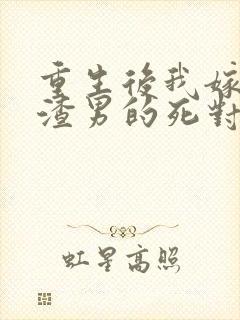 重生後我嫁
渣男的死對
虹星高照